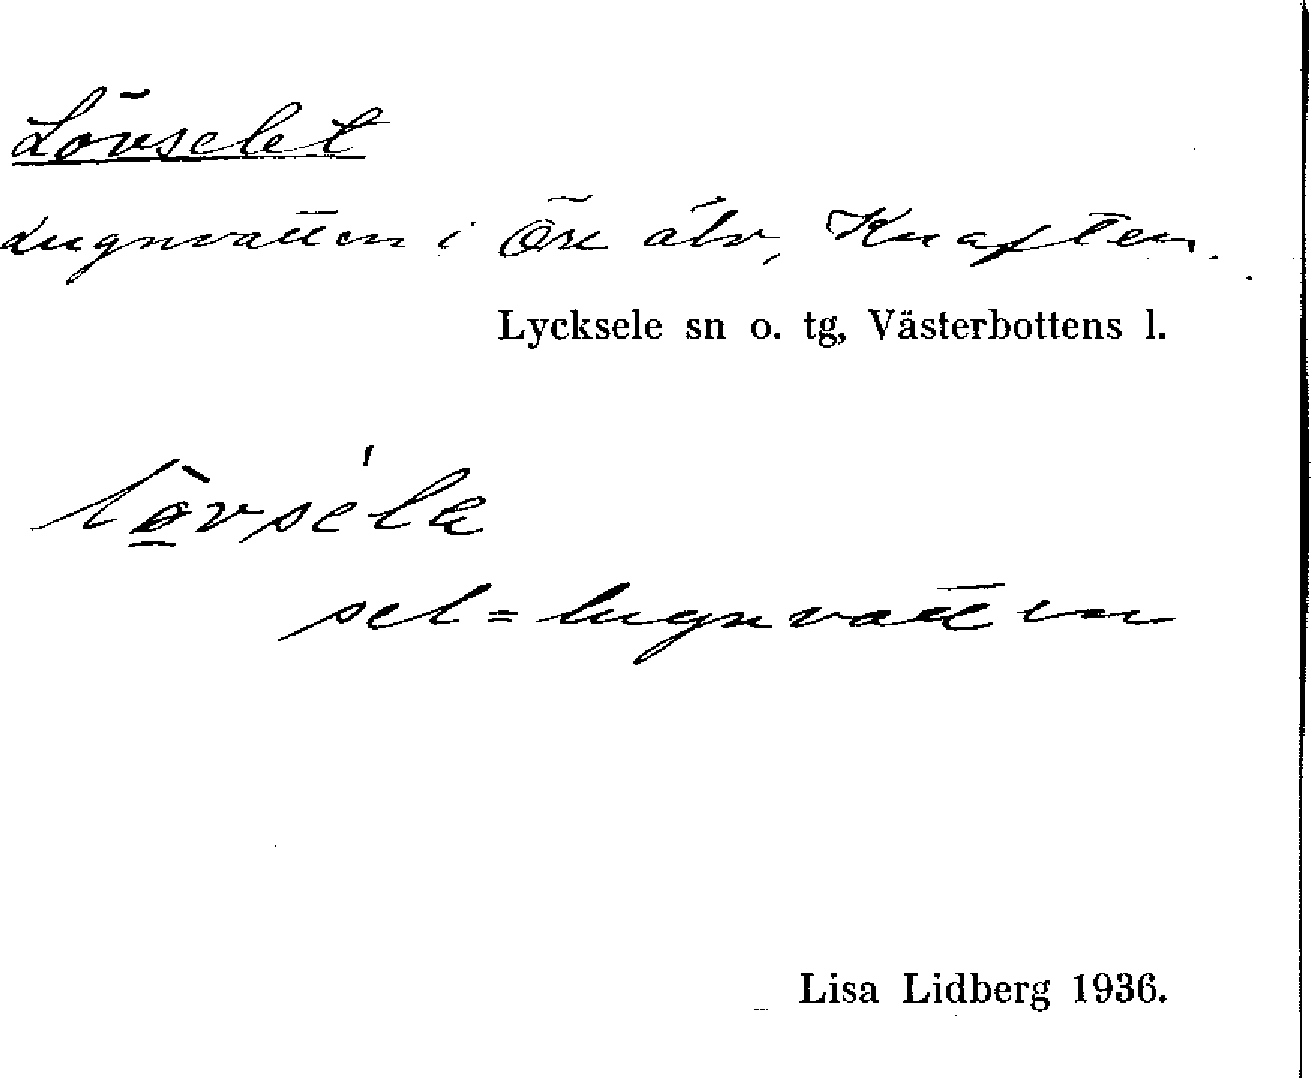 Lövselet
Lugnvatten i Öre älv, Knaften.
Lycksele sn o. tg, Västerbottens l.
lø̱̀vse'la
sel = lugnvatten
Lisa Lidberg 1936.